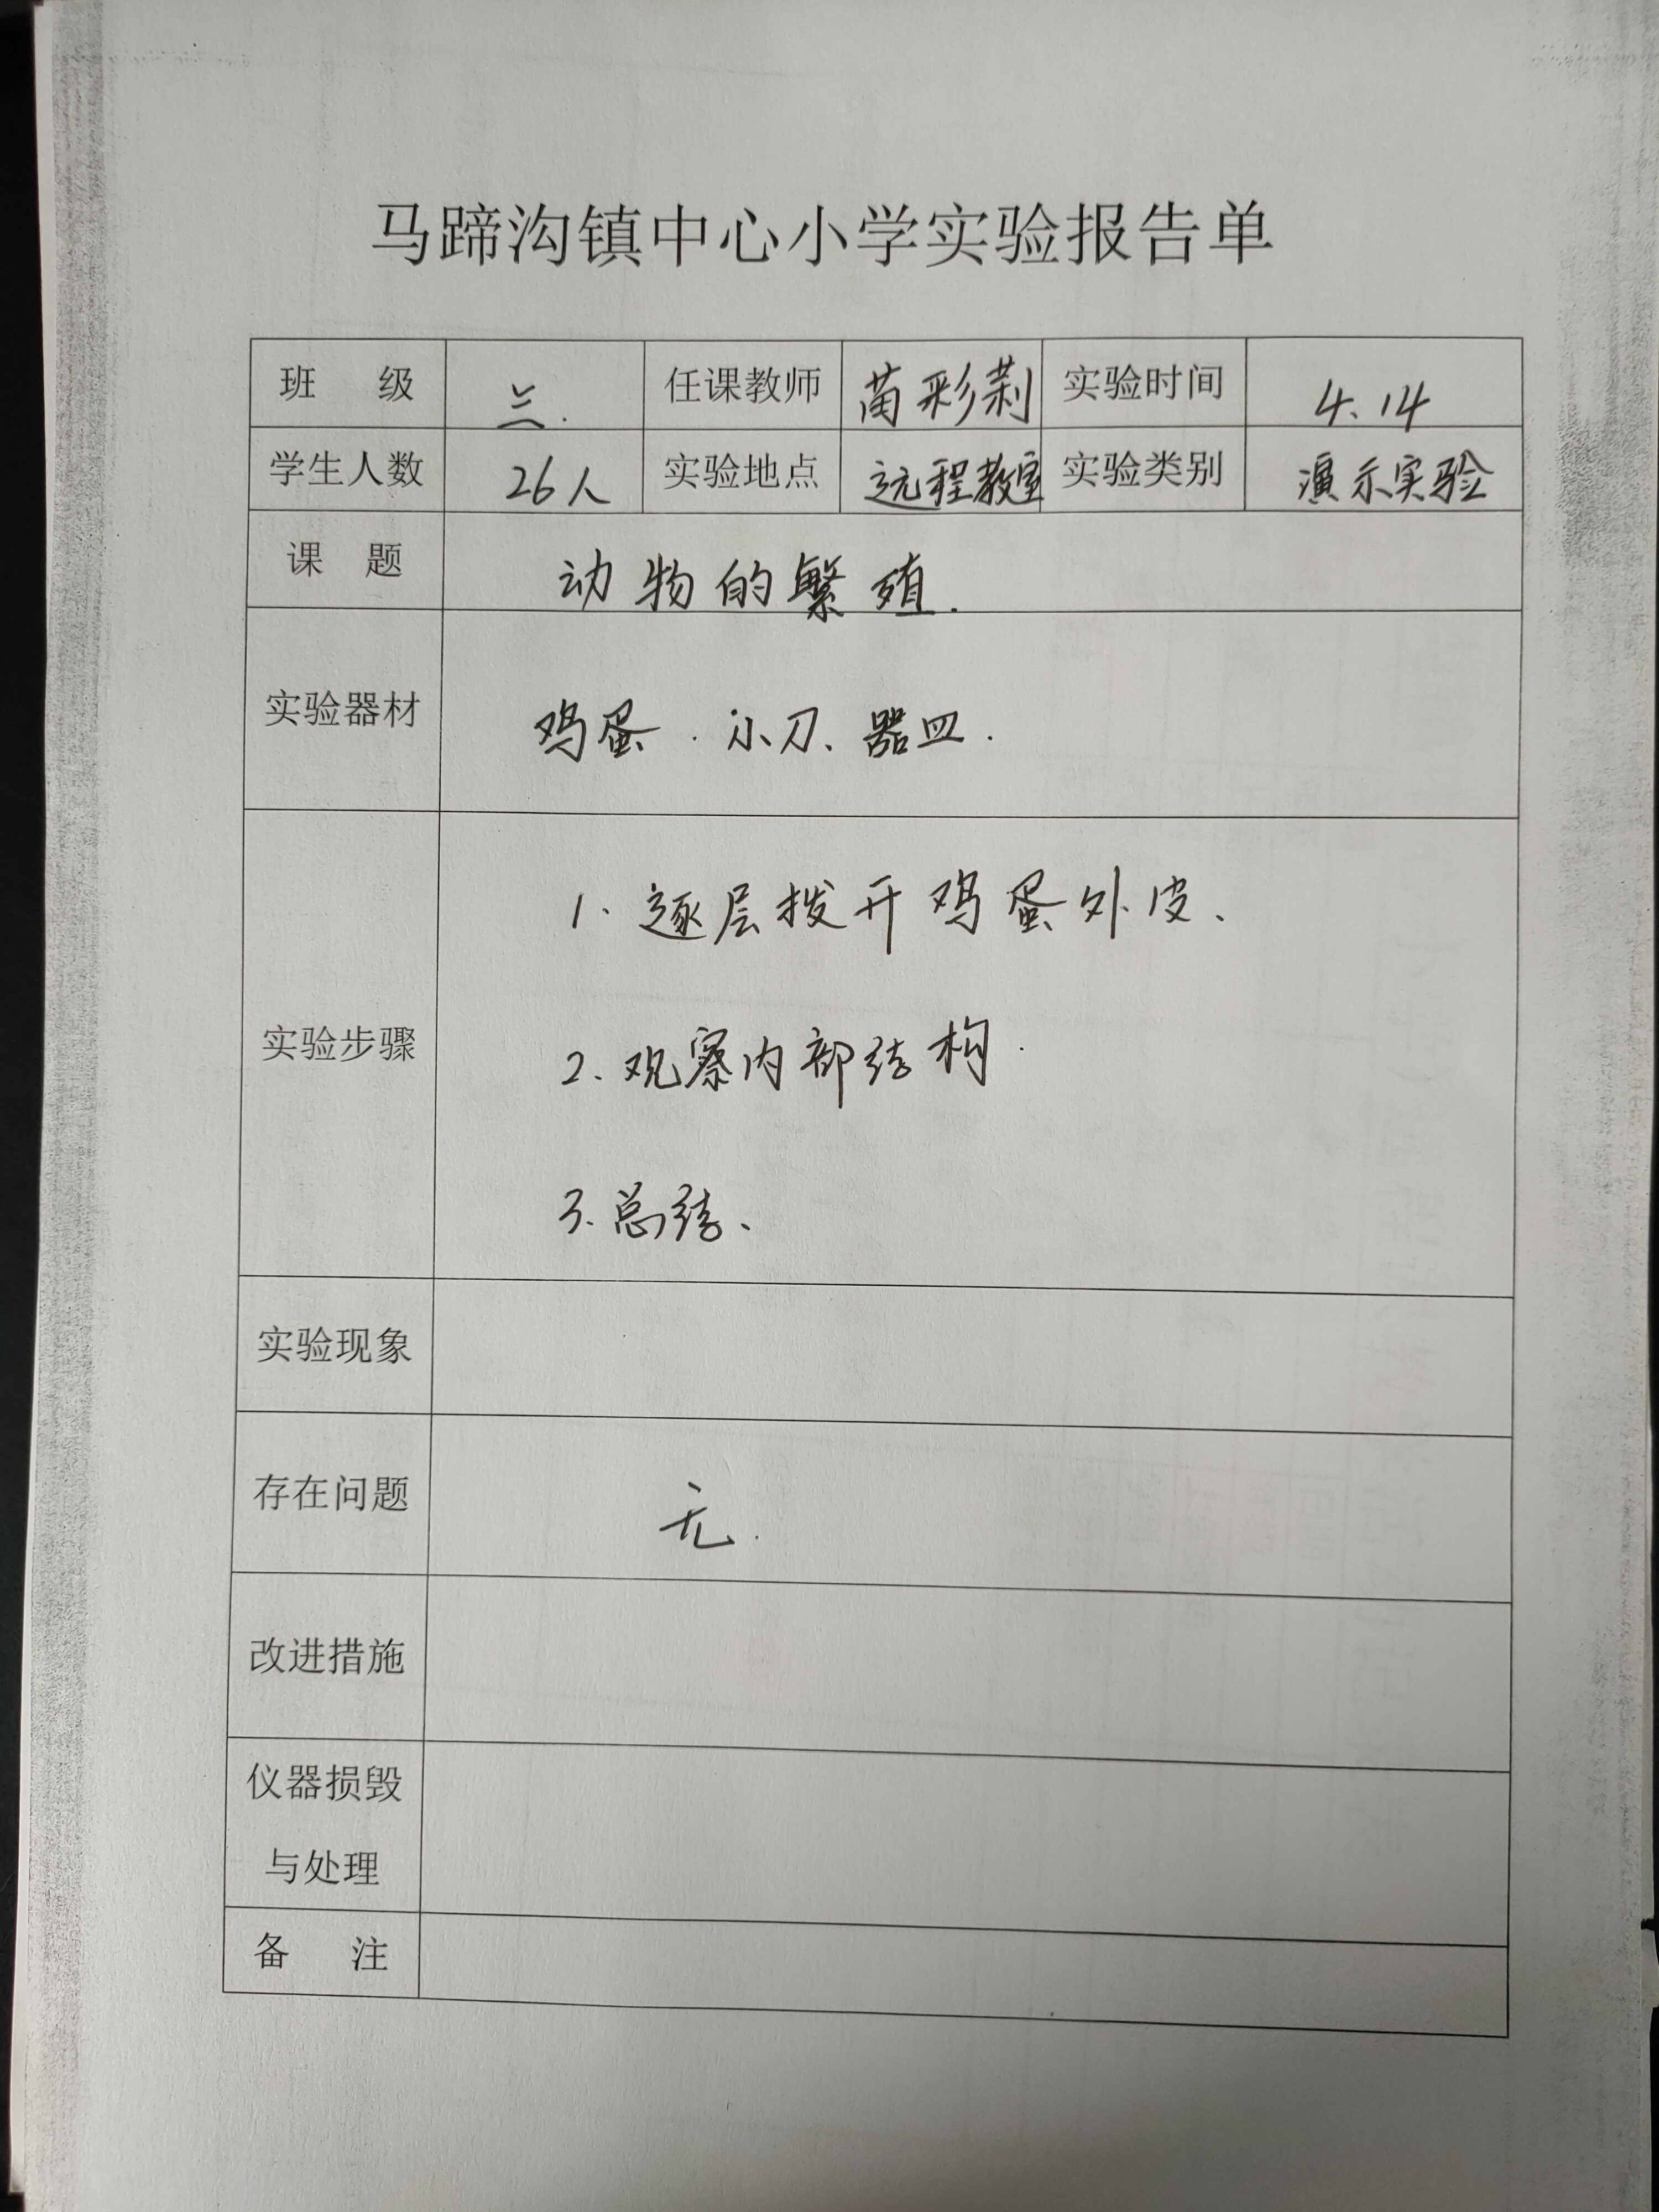 马蹄沟镇中心小学实验报告单
班 级 三. 任课教师 苗彩莉 实验时间 4.14
学生人数 26人 实验地点 远程教室 实验类别 演示实验
课 题 动物的繁殖.
实验器材 鸡蛋.小刀、器皿.
实验步骤
1.逐层拨开鸡蛋外皮、
2.观察内部结构.
3.总结、
实验现象
存在问题 无.
改进措施
仪器损毁
与处理
备 注